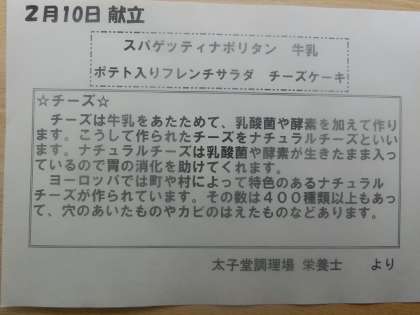 2月10日 献立
スパゲッティナポリタン 牛乳
ポテト入りフレンチサラダ チーズケーキ
☆チーズ☆
チーズは牛乳をあたためて、乳酸菌や酵素を加えて作り
ます。こうして作られたチーズをナチュラルチーズといい
ます。ナチュラルチーズは乳酸菌や酵素が生きたまま入っ
ているので胃の消化を助けてくれます。
ヨーロッパでは町や村によって特色のあるナチュラル
チーズが作られています。その数は400種類以上もあっ
て、穴のあいたものやカビのはえたものなどあります。
太子堂調理場 栄養士 より